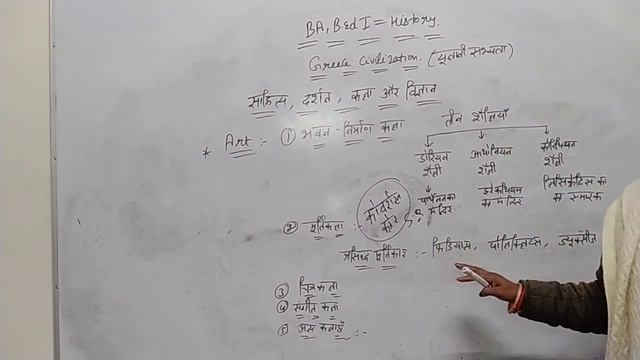 BA, B.Ed I = History
Greece Civilization. (यूनानी सभ्यता)
साहित्य, दर्शन, कला और विज्ञान
* Art :- ① भवन-निर्माण कला
तीन शैलियाँ
डोरियन शैली
आयोनियन शैली
कोरिंथियन शैली
पार्थेनन का मंदिर
का मंदिर
का स्मारक
② मूर्तिकला :-
प्रसिद्ध मूर्तिकार :- फिडियास,
③ चित्रकला
④ संगीत कला
⑤ अन्य कलाएँ :-